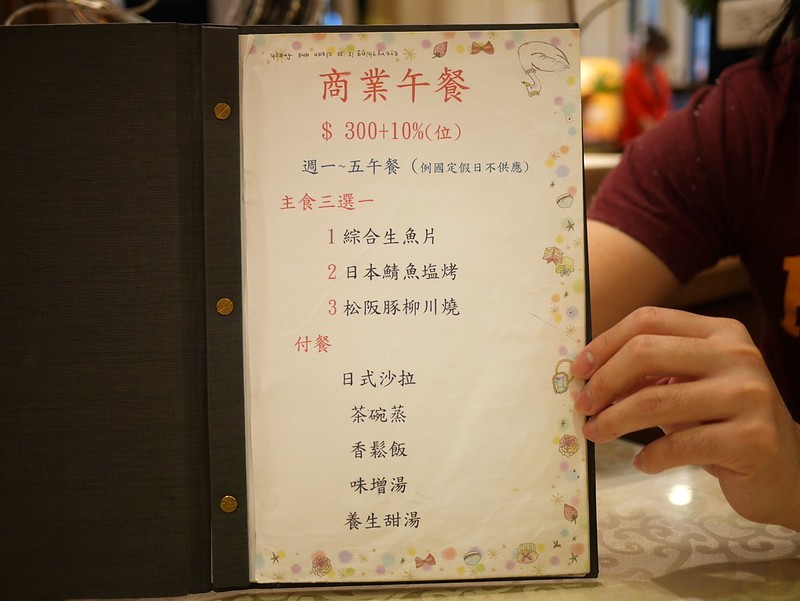 everything is so clean and fresh
商業午餐
$ 300+10%(位)
週一~五午餐 (例國定假日不供應)
主食三選一
1 綜合生魚片
2 日本鯖魚塩烤
3 松阪豚柳川燒
付餐
日式沙拉
茶碗蒸
香鬆飯
味增湯
養生甜湯